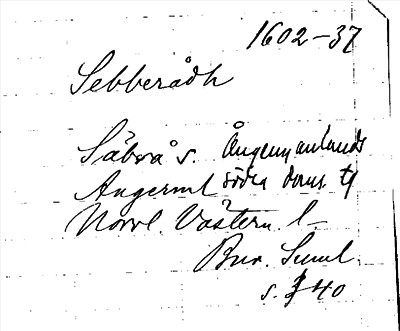 1602-37
Sebberådh
Säbrå s. Ångermanlands
Ångerml södra doms. tg
Norrl. Västern. l–
Bur. Suml.
s. 340